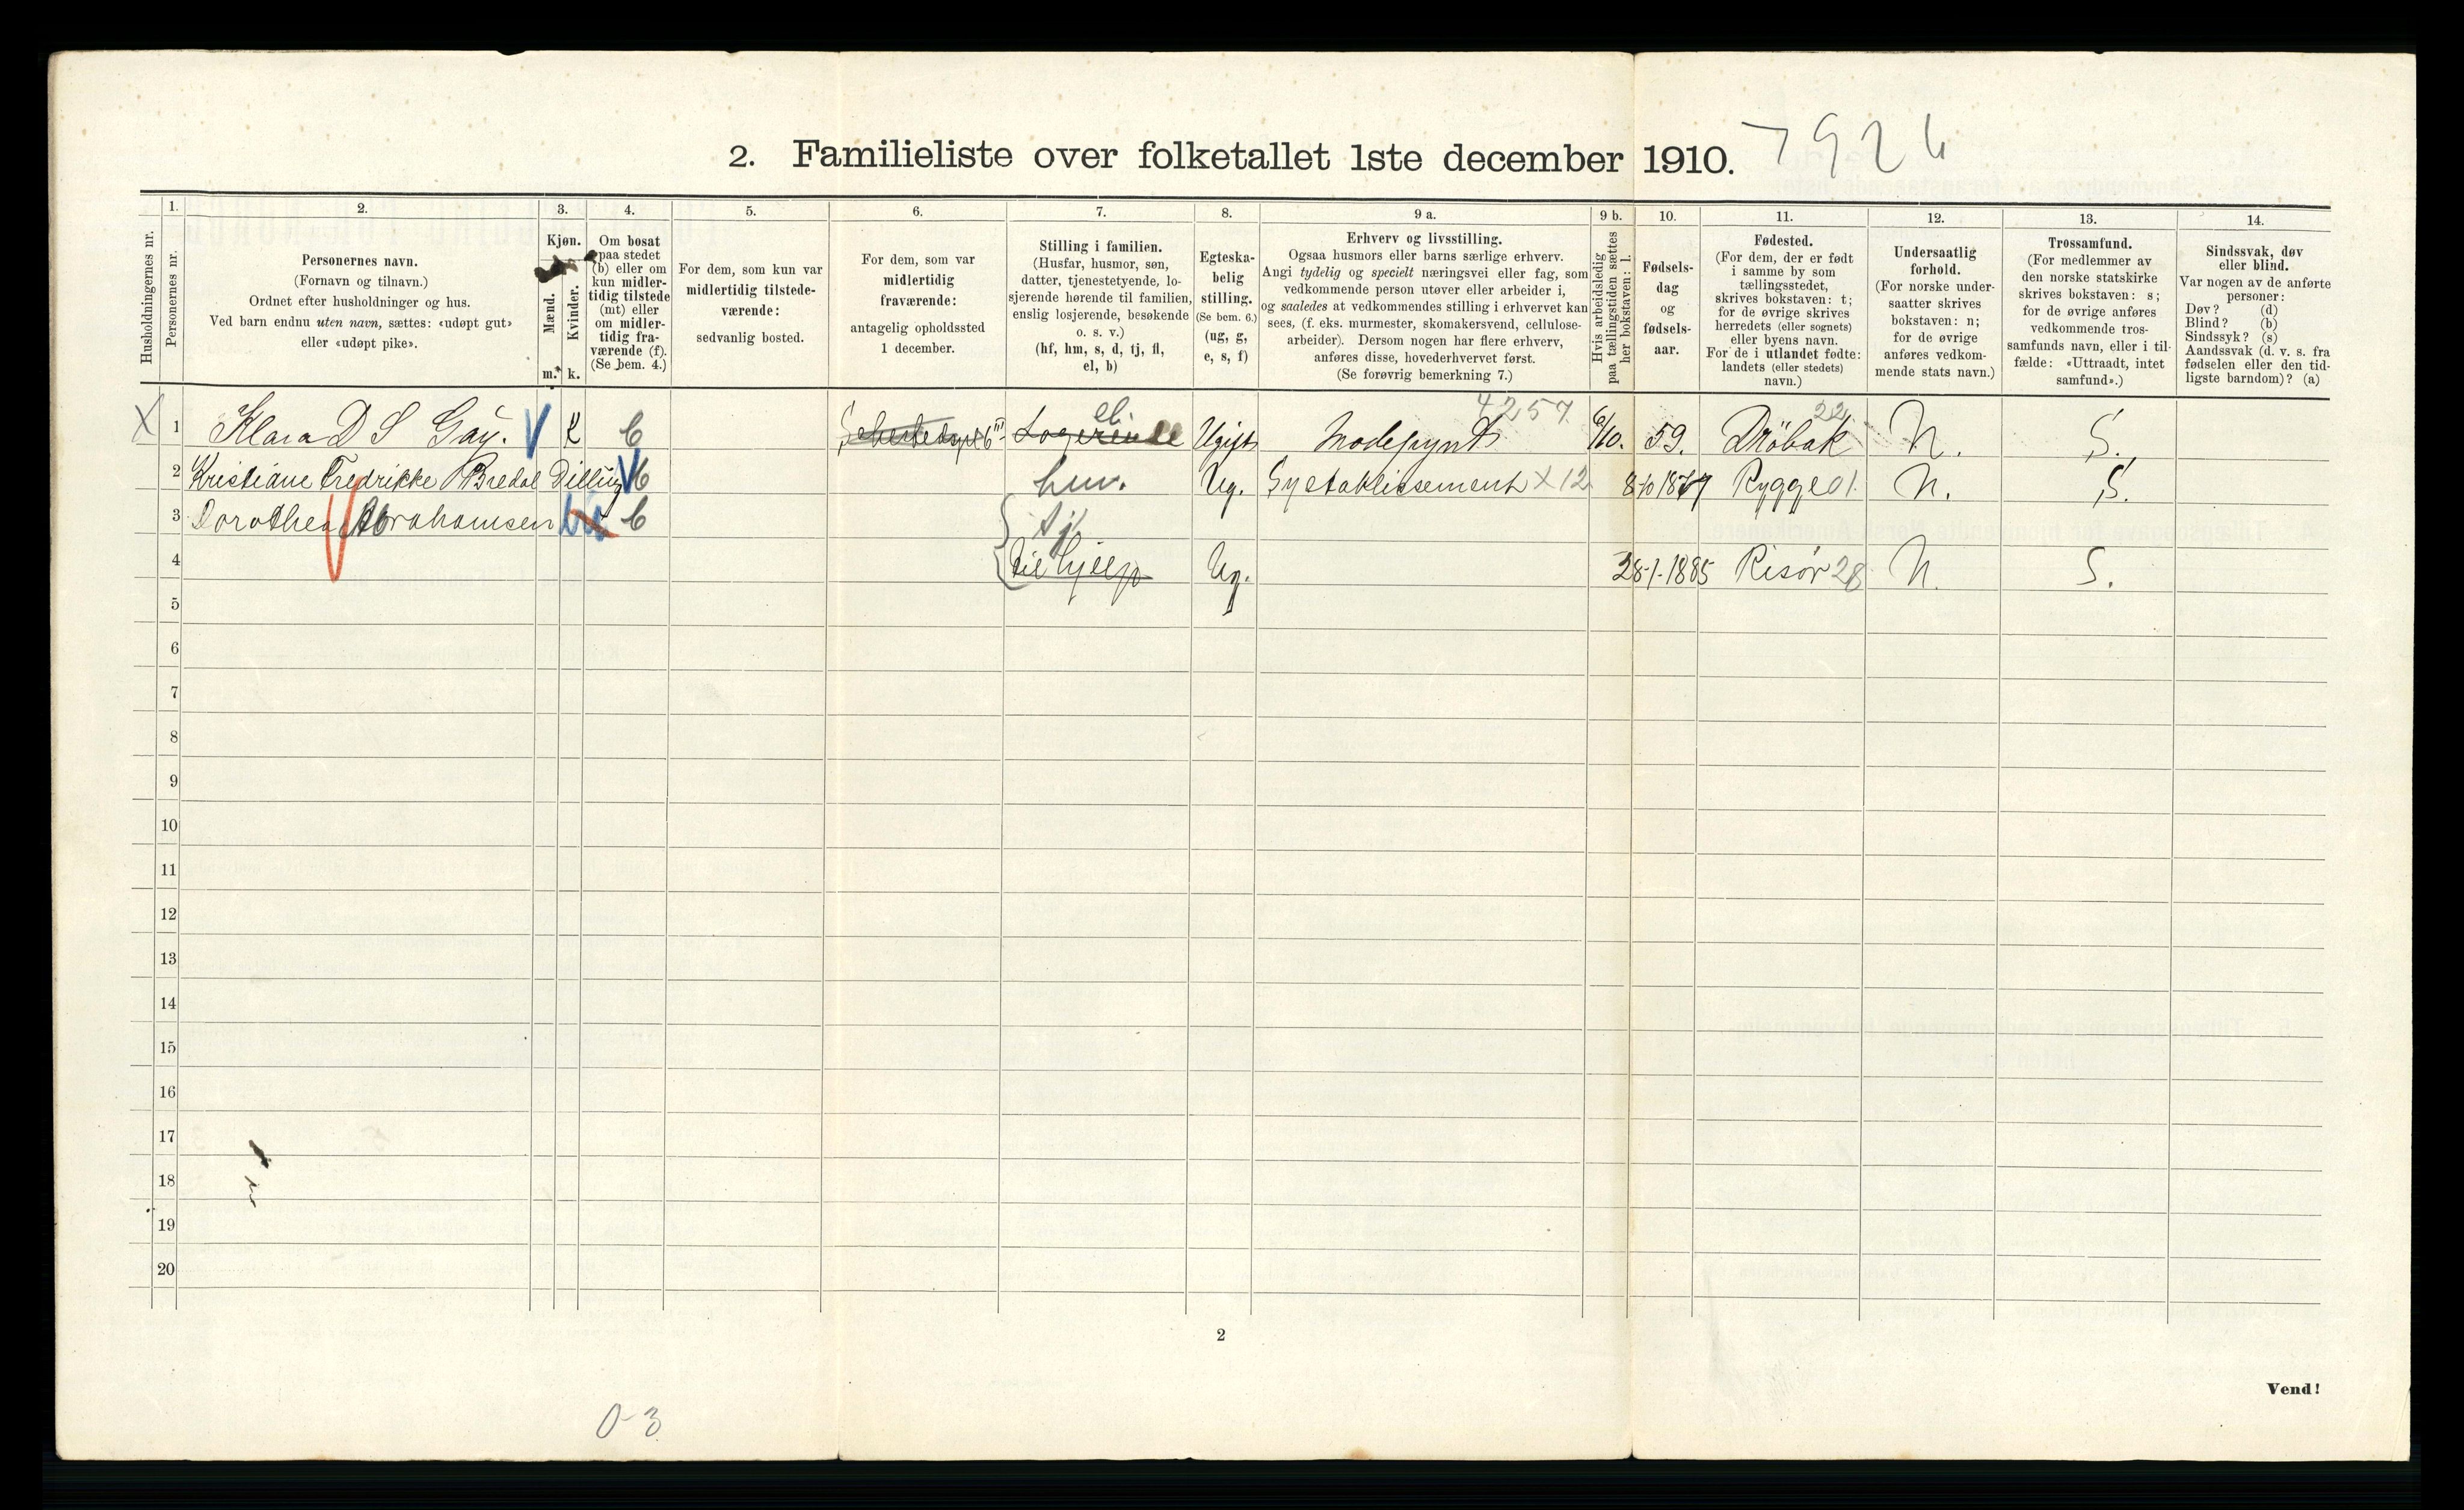 2. Familieliste over folketallet 1ste december 1910. 7924
1. 2. 3. 4. 5. 6. 7. 8. 9 a. 9 b. 10. 11. 12. 13. 14.
Husholdningernes nr.
Personernes nr.
Personernes navn.
(Fornavn og tilnavn.)
Ordnet efter husholdninger og hus.
Ved barn endnu uten navn, sættes: «udøpt gut»
eller «udøpt pike».
Kjøn.
Mænd.
Kvinder.
m. k.
Om bosat
paa stedet
(b) eller om
kun midler-
tidig tilstede
(mt) eller
om midler-
tidig fra-
værende (f).
(Se bem. 4.)
For dem, som kun var
midlertidig tilstede-
værende:
sedvanlig bosted.
For dem, som var
midlertidig
fraværende:
antagelig opholdssted
1 december.
Stilling i familien.
(Husfar, husmor, søn,
datter, tjenestetyende, lo-
sjerende hørende til familien,
enslig losjerende, besøkende
o. s. v.)
(hf, hm, s, d, tj, fl,
el, b)
Egteska-
belig
stilling.
(Se bem. 6.)
(ug, g,
e, s, f)
Erhverv og livsstilling.
Ogsaa husmors eller barns særlige erhverv.
Angi tydelig og specielt næringsvei eller fag, som
vedkommende person utøver eller arbeider i,
og saaledes at vedkommendes stilling i erhvervet kan
sees, (f. eks. murmester, skomakersvend, cellulose-
arbeider). Dersom nogen har flere erhverv,
anføres disse, hovederhvervet først.
(Se forøvrig bemerkning 7.)
Hvis arbeidsledig
paa tællingstiden sættes
her bokstaven: l.
Fødsels-
dag
og
fødsels-
aar.
Fødested.
(For dem, der er født
i samme by som
tællingsstedet,
skrives bokstaven: t;
for de øvrige skrives
herredets (eller sognets)
eller byens navn.
For de i utlandet fødte:
landets (eller stedets)
navn.)
Undersaatlig
forhold.
(For norske under-
saatter skrives
bokstaven: n;
for de øvrige
anføres vedkom-
mende stats navn.)
Trossamfund.
(For medlemmer av
den norske statskirke
skrives bokstaven: s;
for de øvrige anføres
vedkommende tros-
samfunds navn, eller i til-
fælde: «Uttraadt, intet
samfund».)
Sindssvak, døv
eller blind.
Var nogen av de anførte
personer:
Døv? (d)
Blind? (b)
Sindssyk? (s)
Aandssvak (d. v. s. fra
fødselen eller den tid-
ligste barndom)? (a)
X 1 Klara D S Gay. K b Logerende el Ugift Modepynt 4257 6/10. 59. Dröbak 22 N. S.
2 Kristiane Fredrikke Bredal Dilling b hm. Ug. Syetablissement X 12 8-10 1877 Rygge 01. N. S.
3 Dorothea Abrahamsen b tj
4 til hjelp Ug. 28-1-1885 Risör 28 N. S.
5
6
7
8
9
10
11
12
13
14
15
16
17
18
19
20
2
Vend!
0-3